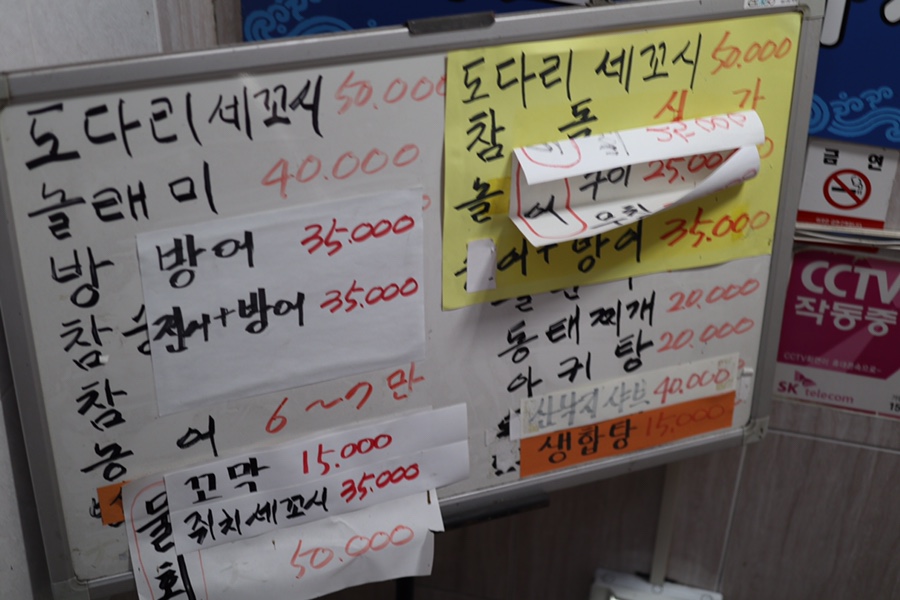 도다리 세꼬시 50.000
놀래미 40.000
방
방어 35.000
전어+방어 35.000
참
참
농어 6~7만
꼬막 15.000
쥐치세꼬시 35.000
물회
50.000
도다리 세꼬시 50.000
참돔 시가
놀
구이 25.000
어+방어 35.000
동태찌개 20.000
아귀탕 20.000
산낙지 샤브 40.000
생합탕 15.000
금연
CCTV
작동중
SK telecom